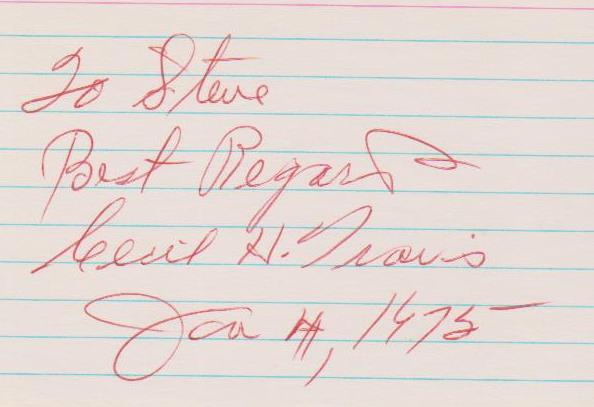 To Steve
Best Regards
Cecil H. Travis
Jan 4, 1975